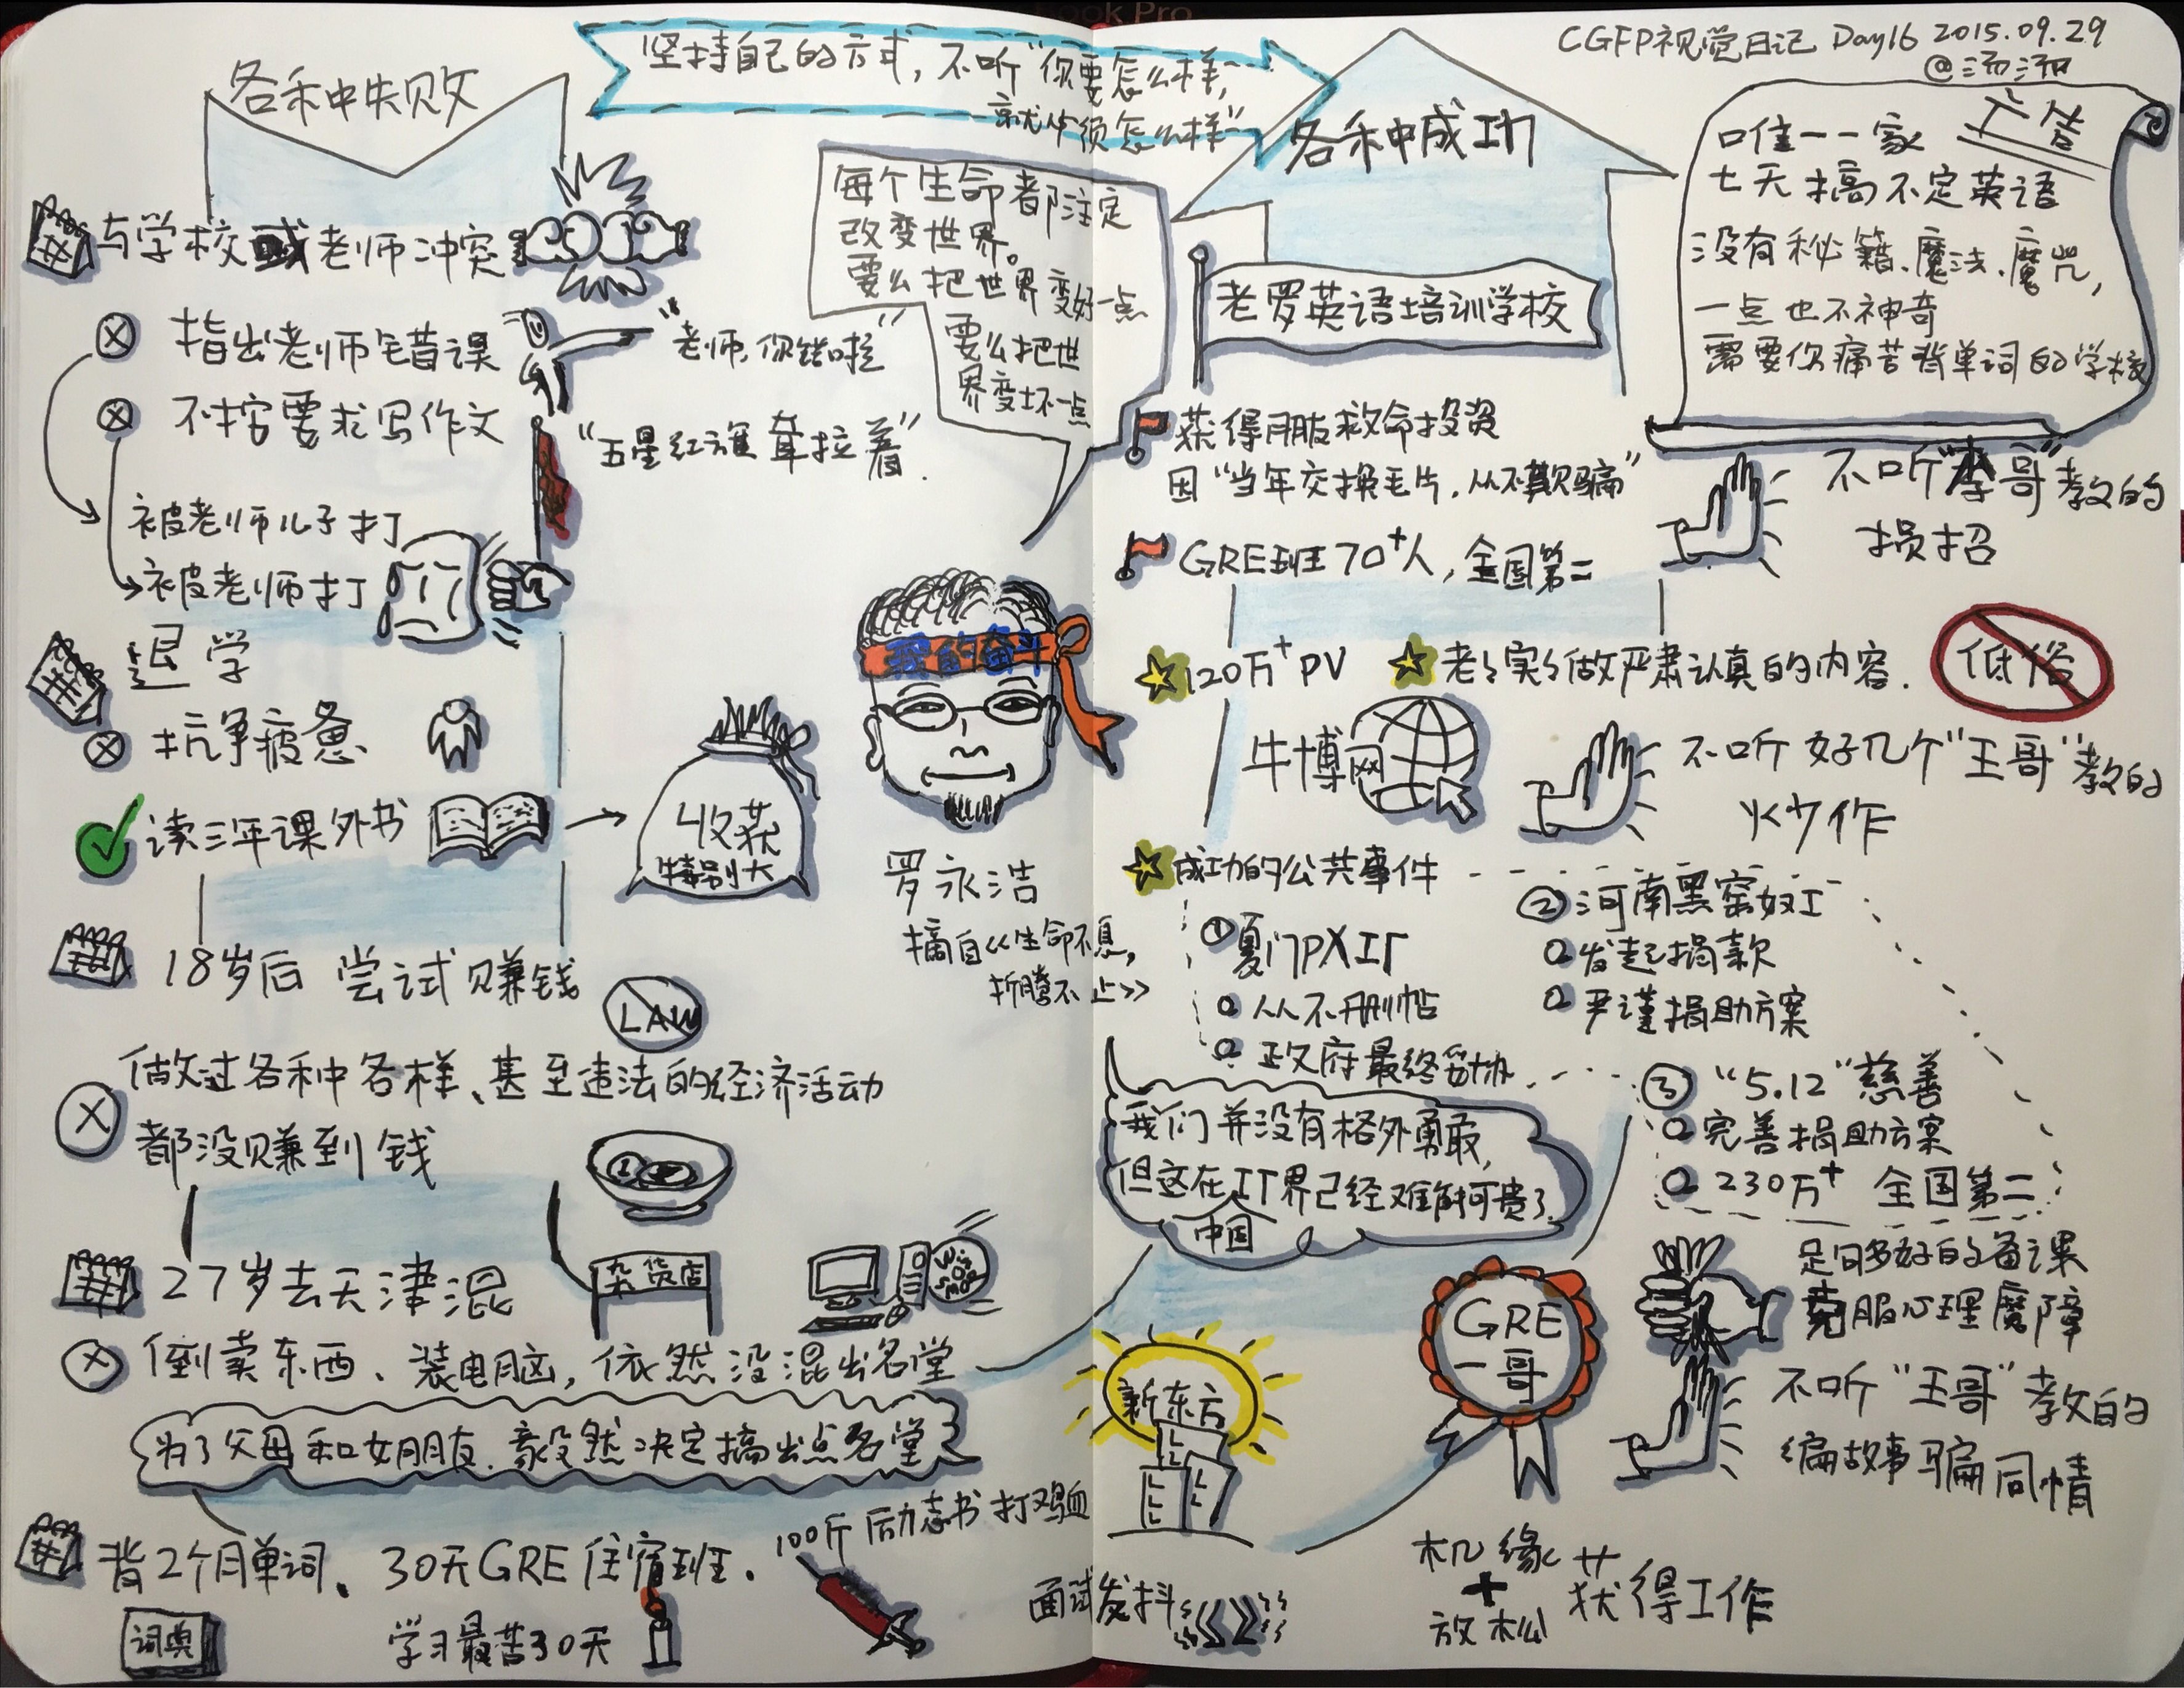 Book Pro
CGFP视觉日记 Day16 2015.09.29
@汤汤
坚持自己的方式，不听“你要怎么样，
就必须怎么样”
各种失败
与学校或老师冲突
指出老师错误
“老师，你错啦”
不按要求写作文
“五星红旗耷拉着”
被老师儿子打
被老师打
退学
抗争疲惫
读三年课外书
收获
特别大
18岁后 尝试赚钱
LAW
做过各种各样、甚至违法的经济活动
都没赚到钱
27岁去天津混
杂货店
倒卖东西、装电脑，依然没混出名堂
为了父母和女朋友，毅然决定搞出点名堂
背2个月单词、30天GRE住宿班.
100斤励志书 打鸡血
词典
学习最苦30天
每个生命都注定
改变世界。
要么把世界变好一点
要么把世
界变坏一点
理的奋斗
罗永浩
摘自《生命不息，
折腾不止》
各种成功
老罗英语培训学校
广告
唯一一家
七天搞不定英语
没有秘籍、魔法、魔咒，
一点也不神奇
需要你痛苦背单词的学校
获得朋友救命投资
因“当年交换毛片，从不欺骗”
GRE班70+人，全国第二
不听“李哥”教的
损招
120万+PV
老老实实做严肃认真的内容.
低俗
牛博网
不听好几个“王哥”教的
炒作
成功的公共事件
①厦门PX工厂
从不删帖
政府最终妥协
②河南黑窑奴工
发起捐款
严谨捐助方案
③“5.12”慈善
完善捐助方案
230万+ 全国第二
我们并没有格外勇敢，
但这在IT界已经难能可贵了.
中国
新东方
GRE
一哥
足够多好的备课
克服心理魔障
不听“王哥”教的
编故事骗同情
面试发抖
机缘
+
放松
获得工作